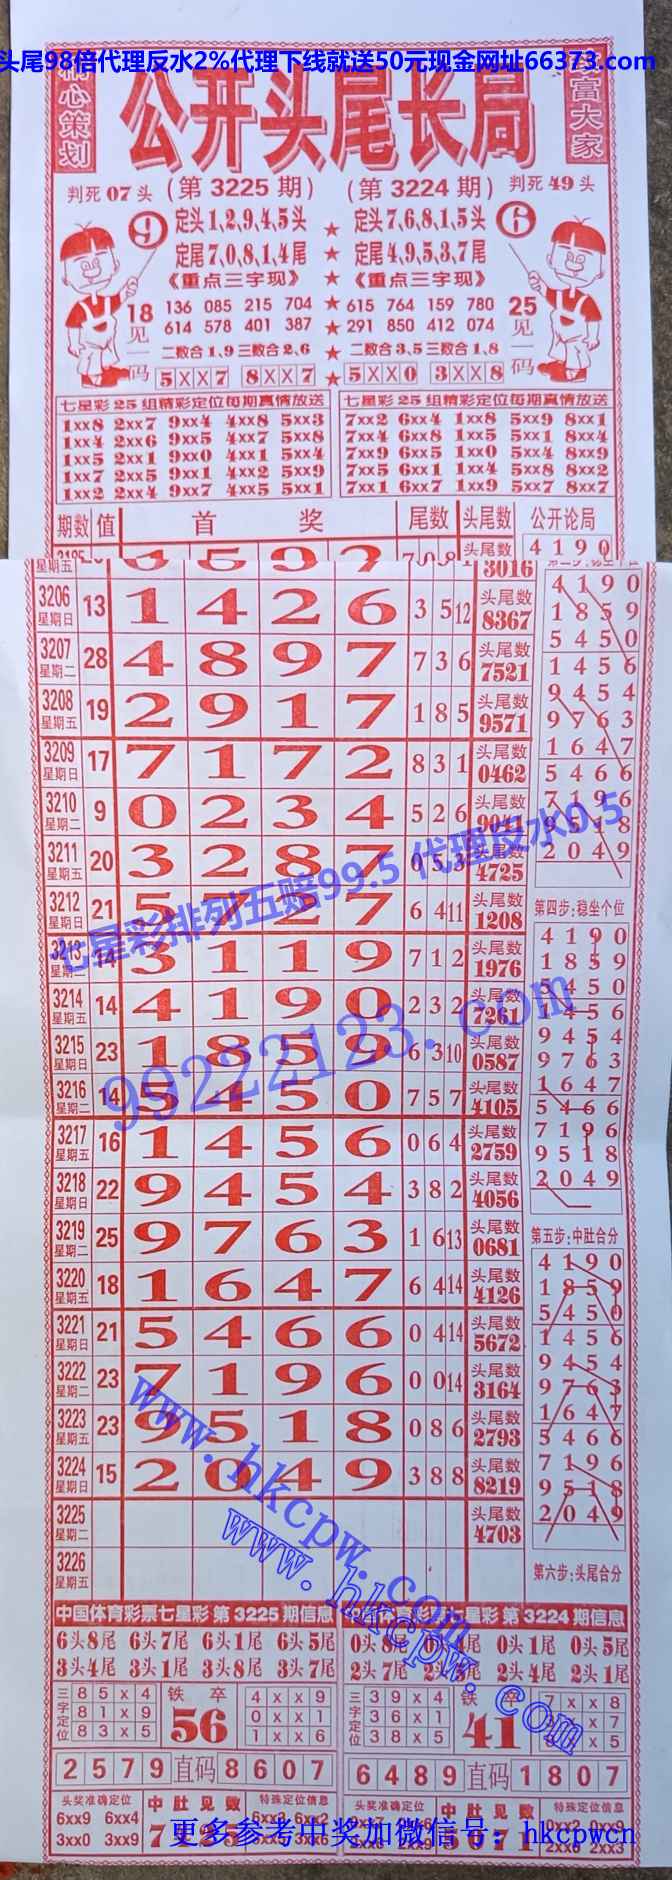 头尾98倍代理反水2%代理下线就送50元现金网址66373.com
心策划
公开头尾长局
富大家
判死07头 (第3225期) (第3224期) 判死49头
9 定头1,2,9,4,5头 ★ 定头7,6,8,1,5头 6
定尾7,0,8,1,4尾 ★ 定尾4,9,5,3,7尾
《重点三字现》 ★ 《重点三字现》
18见一码 136 085 215 704 ★ 615 764 159 780 25见一码
614 578 401 387 ★ 291 850 412 074
二数合1,9三数合2,6 ★ 二数合3,5三数合1,8
5XX7 8XX7 ★ 5XX0 3XX8
七星彩25组精彩定位每期真情放送 七星彩25组精彩定位每期真情放送
1xx8 2xx7 9xx4 4xx8 5xx3 7xx2 6xx4 1xx8 5xx9 8xx1
1xx4 2xx6 9xx5 4xx7 5xx8 7xx4 6xx8 1xx5 5xx1 8xx4
1xx5 2xx1 9xx0 4xx1 5xx4 7xx9 6xx5 1xx0 5xx4 8xx9
1xx7 2xx5 9xx1 4xx2 5xx9 7xx5 6xx1 1xx4 5xx8 8xx2
1xx2 2xx4 9xx7 4xx5 5xx1 7xx1 6xx7 1xx9 5xx7 8xx7
期数 值 首奖 尾数 头尾数 公开论局
星期五 头尾数 3016
3206 星期日 13 1 4 2 6 3 5 12 头尾数 8367
3207 星期二 28 4 8 9 7 7 3 6 头尾数 7521
3208 星期五 19 2 9 1 7 1 8 5 头尾数 9571
3209 星期日 17 7 1 7 2 8 3 1 头尾数 0462
3210 星期二 9 0 2 3 4 5 2 6 头尾数 9041
3211 星期五 20 3 2 8 7 0 5 3 头尾数 4725
3212 星期日 21 5 7 2 7 6 4 11 头尾数 1208
3213 星期二 14 3 1 1 9 7 1 2 头尾数 1976
3214 星期五 14 4 1 9 0 2 3 2 头尾数 7261
3215 星期日 23 1 8 5 9 6 3 10 头尾数 0587
3216 星期二 14 5 4 5 0 7 5 7 头尾数 4105
3217 星期五 16 1 4 5 6 0 6 4 头尾数 2759
3218 星期日 22 9 4 5 4 3 8 2 头尾数 4056
3219 星期二 25 9 7 6 3 1 6 13 头尾数 0681
3220 星期五 18 1 6 4 7 6 4 14 头尾数 4126
3221 星期日 21 5 4 6 6 0 4 14 头尾数 5672
3222 星期二 23 7 1 9 6 0 0 14 头尾数 3164
3223 星期五 23 9 5 1 8 0 8 6 头尾数 2793
3224 星期日 15 2 0 4 9 3 8 8 头尾数 8219
3225 星期二 头尾数 4703
3226 星期五
4190
4190
1859
5450
1456
9454
9763
1647
5466
7196
9518
2049
第四步:稳坐个位
4190
1859
5450
1456
9454
9763
1647
5466
7196
9518
2049
第五步:中肚合分
4190
1859
5450
1456
9454
9763
1647
5466
7196
9518
2049
第六步:头尾合分
七星彩排列五赔99.5 代理反水0.5
99222123.com
www.hkcpw.com
www.hkcpw.com
中国体育彩票七星彩 第3225期信息 七星彩 第3224期信息
6头8尾 6头7尾 6头1尾 6头5尾 0头1尾 0头5尾
3头4尾 3头1尾 3头8尾 3头7尾 2头7尾 2头4尾 2头1尾
三字定位 85x4 铁卒 4xx9 三字定位 39x4 铁卒 7xx8
81x9 56 0xx1 36x1 41
83x5 1xx6 38x5
2579 直码 8607 6489 直码 1807
头奖准确定位 中肚见数 特殊定位信息 头奖准确定位 中肚见数 特殊定位信息
6xx9 6xx4 0xx2 0xx9
3xx0 3xx9
更多参考中奖加微信号: hkcpwcn